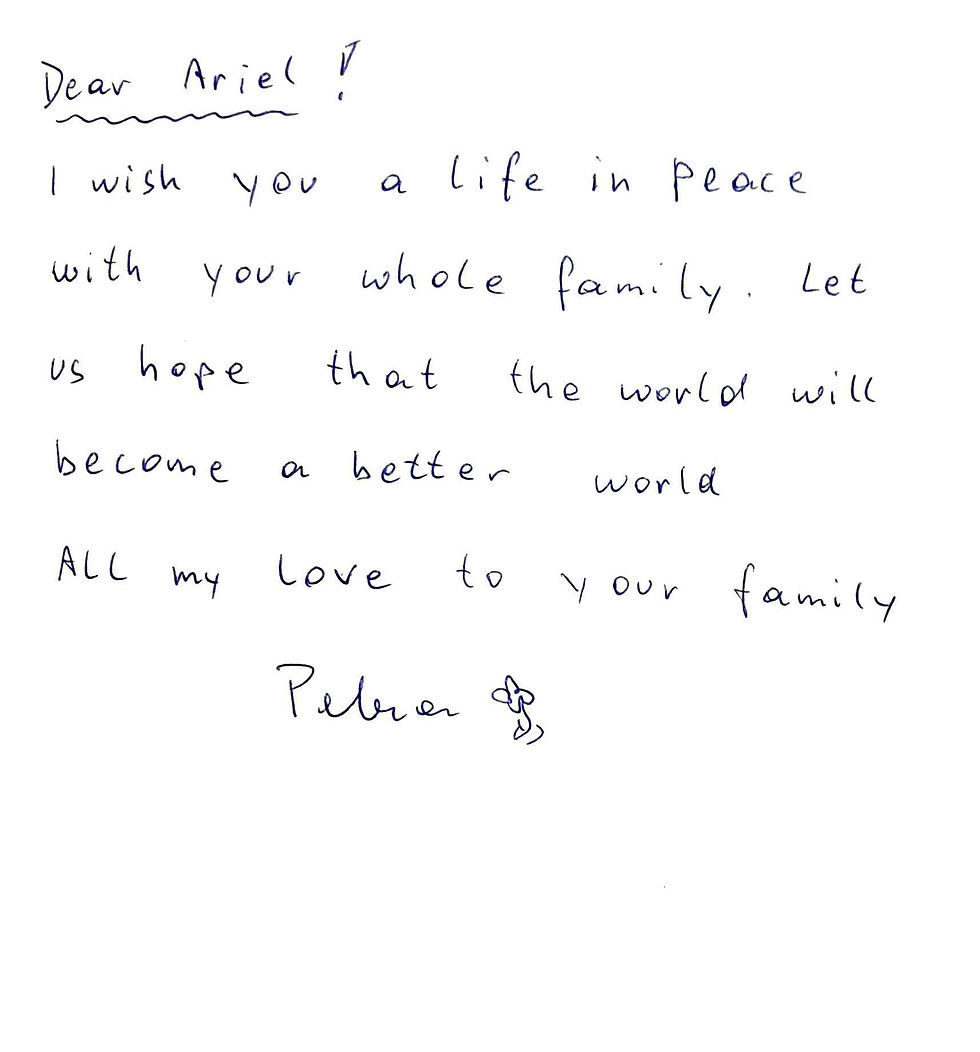 Dear Ariel !
I wish you a life in peace
with your whole family. Let
us hope that the world will
become a better world
ALL my love to your family